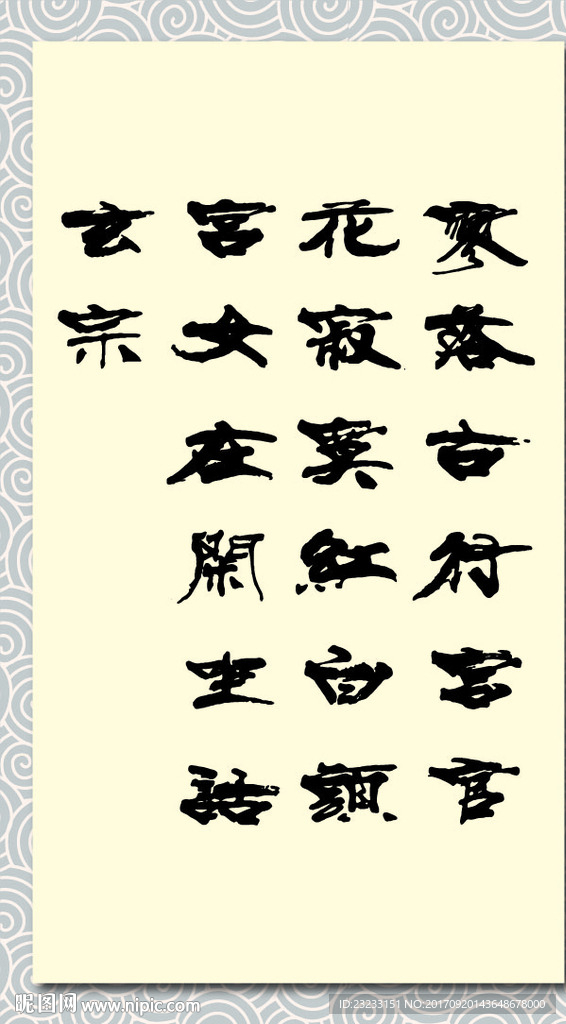 寥落古行宮官
花寂寞紅白頭
宮女在閑坐話
玄宗
昵图网 www.nipic.com
ID:23233151 NO:20170920143648678000